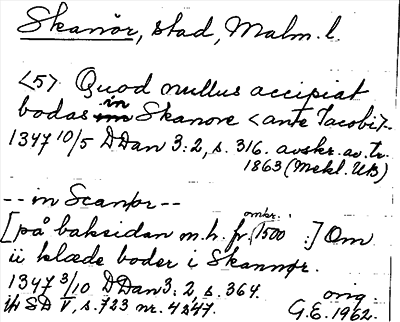 Skanör, stad, Malm. l.
<5> Quod nullus accipiat
bodas in Skanore <ante Jacobi>.
1347 10/5 DDan 3:2, s. 316. avskr. av tr.
1863 (Mekl. UB)
-- in Scanør --
[på baksidan m. h. fr. omkr. 1500 :] Om
ii klæde boder i Skannør.
1347 3/10 DDan 3:2, s. 364. orig.
SD V, s. 723 nr. 4247. G.E. 1962.